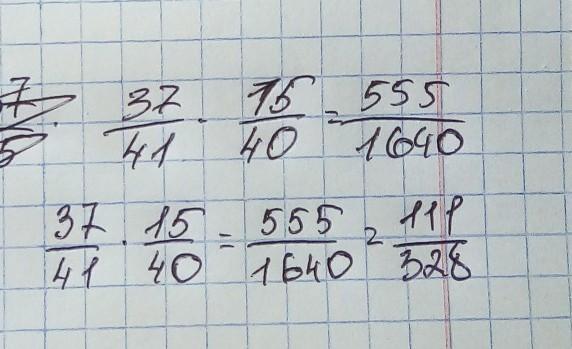 37/41 · 15/40 = 555/1640
37/41 · 15/40 = 555/1640 = 111/328